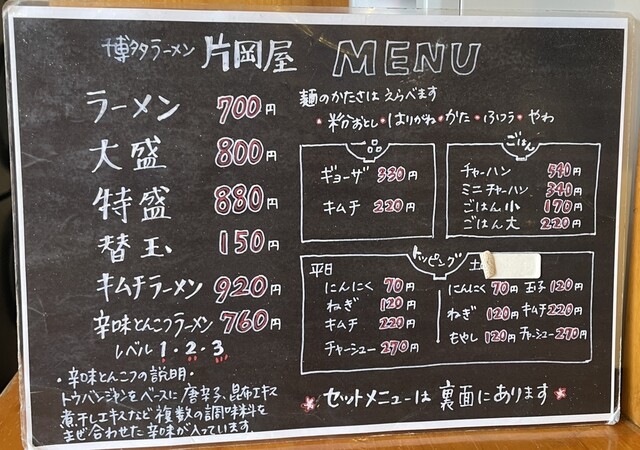 博多ラーメン 片岡屋 MENU
ラーメン 700円
大盛 800円
特盛 880円
替玉 150円
キムチラーメン 920円
辛味とんこつラーメン 760円
レベル 1・2・3
・辛味とんこつの説明・
トウバンジャンをベースに唐辛子、昆布エキス
煮干しエキスなど複数の調味料を
まぜ合わせた辛味が入っています。
麺のかたさはえらべます
粉おとし・はりがね・かた・ふつう・やわ
ギョーザ 330円
キムチ 220円
ごはん
チャーハン 540円
ミニチャーハン 340円
ごはん小 170円
ごはん大 220円
トッピング
平日
にんにく 70円
ねぎ 120円
キムチ 220円
チャーシュー 270円
土
にんにく 70円 玉子 120円
ねぎ 120円 キムチ 220円
もやし 120円 チャーシュー 270円
セットメニューは裏面にあります